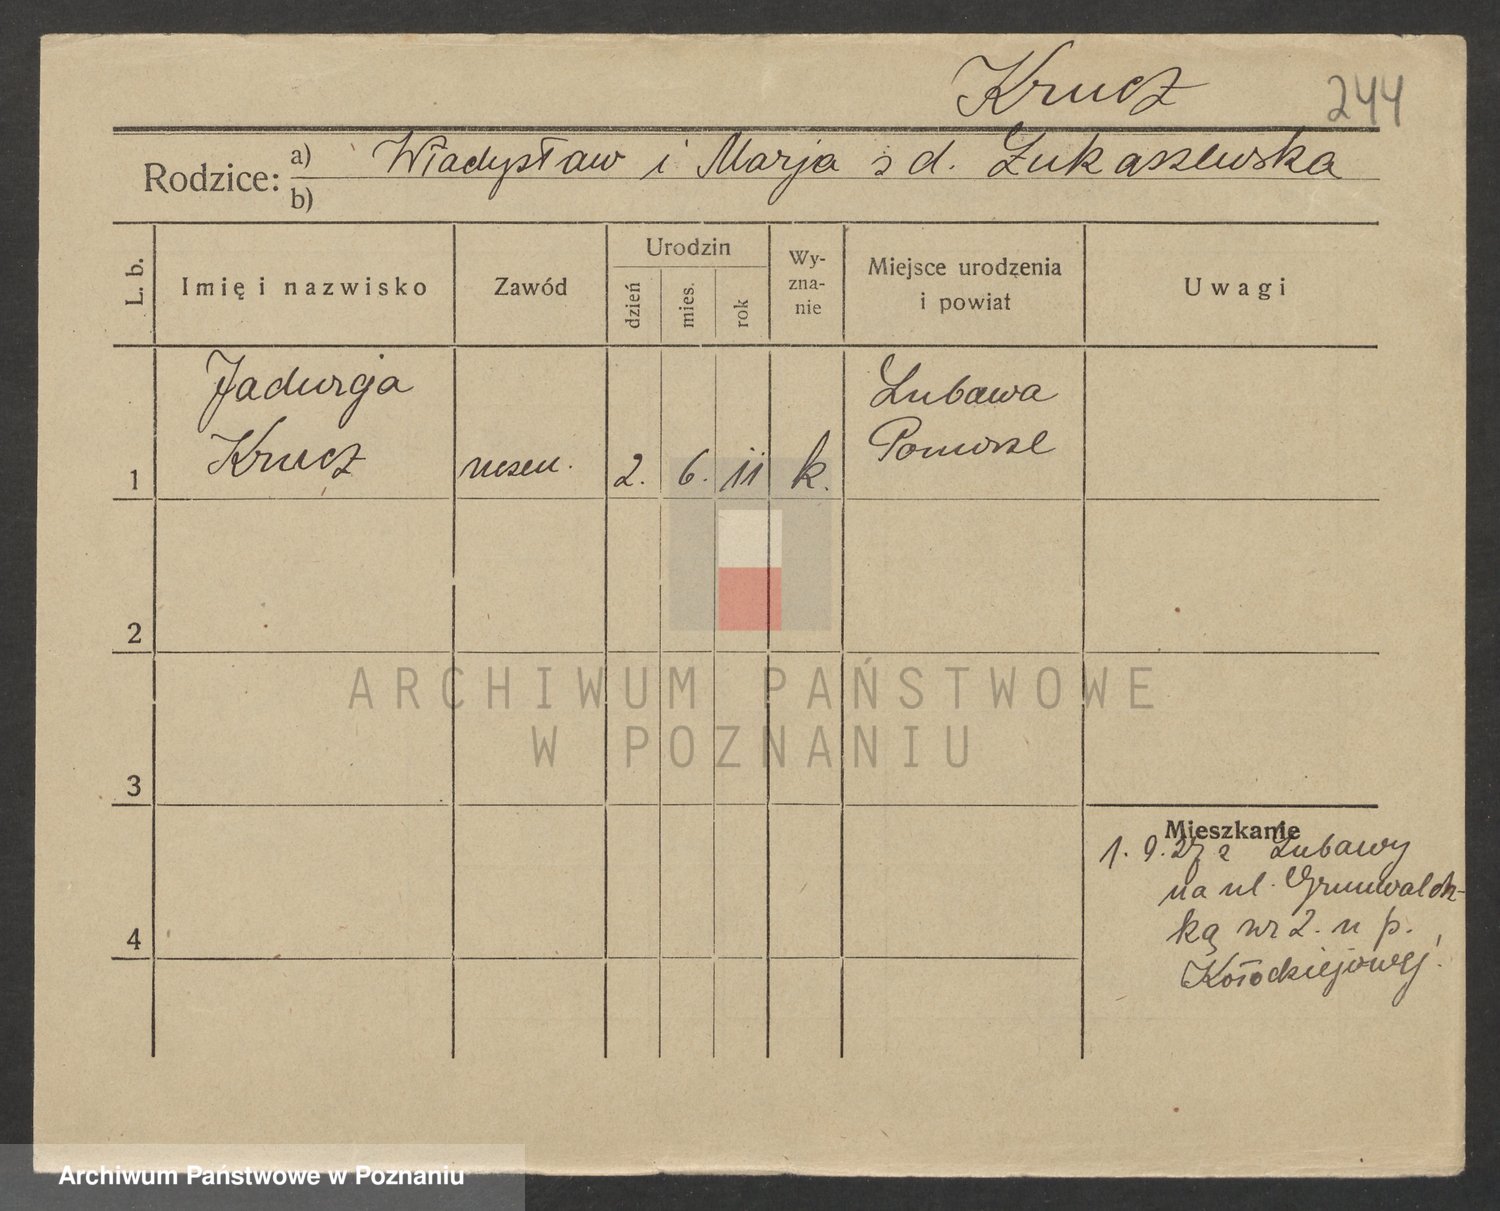 Krucz 244
Rodzice: a) Władysław i Marja z d. Łukaszewska
b)
L. b.
Imię i nazwisko
Zawód
Urodzin
dzień
mies.
rok
Wy-
zna-
nie
Miejsce urodzenia
i powiat
Uwagi
Jadwiga
Krucz
1 uczen. 2. 6. 11 k.
Lubawa
Pomorze
2
3
4
Mieszkanie
1. 9. 27 z Lubawy
na ul. Grunwaldz-
ką nr 2. u p.
Kołodziejowej.
ARCHIWUM PAŃSTWOWE
W POZNANIU
Archiwum Państwowe w Poznaniu